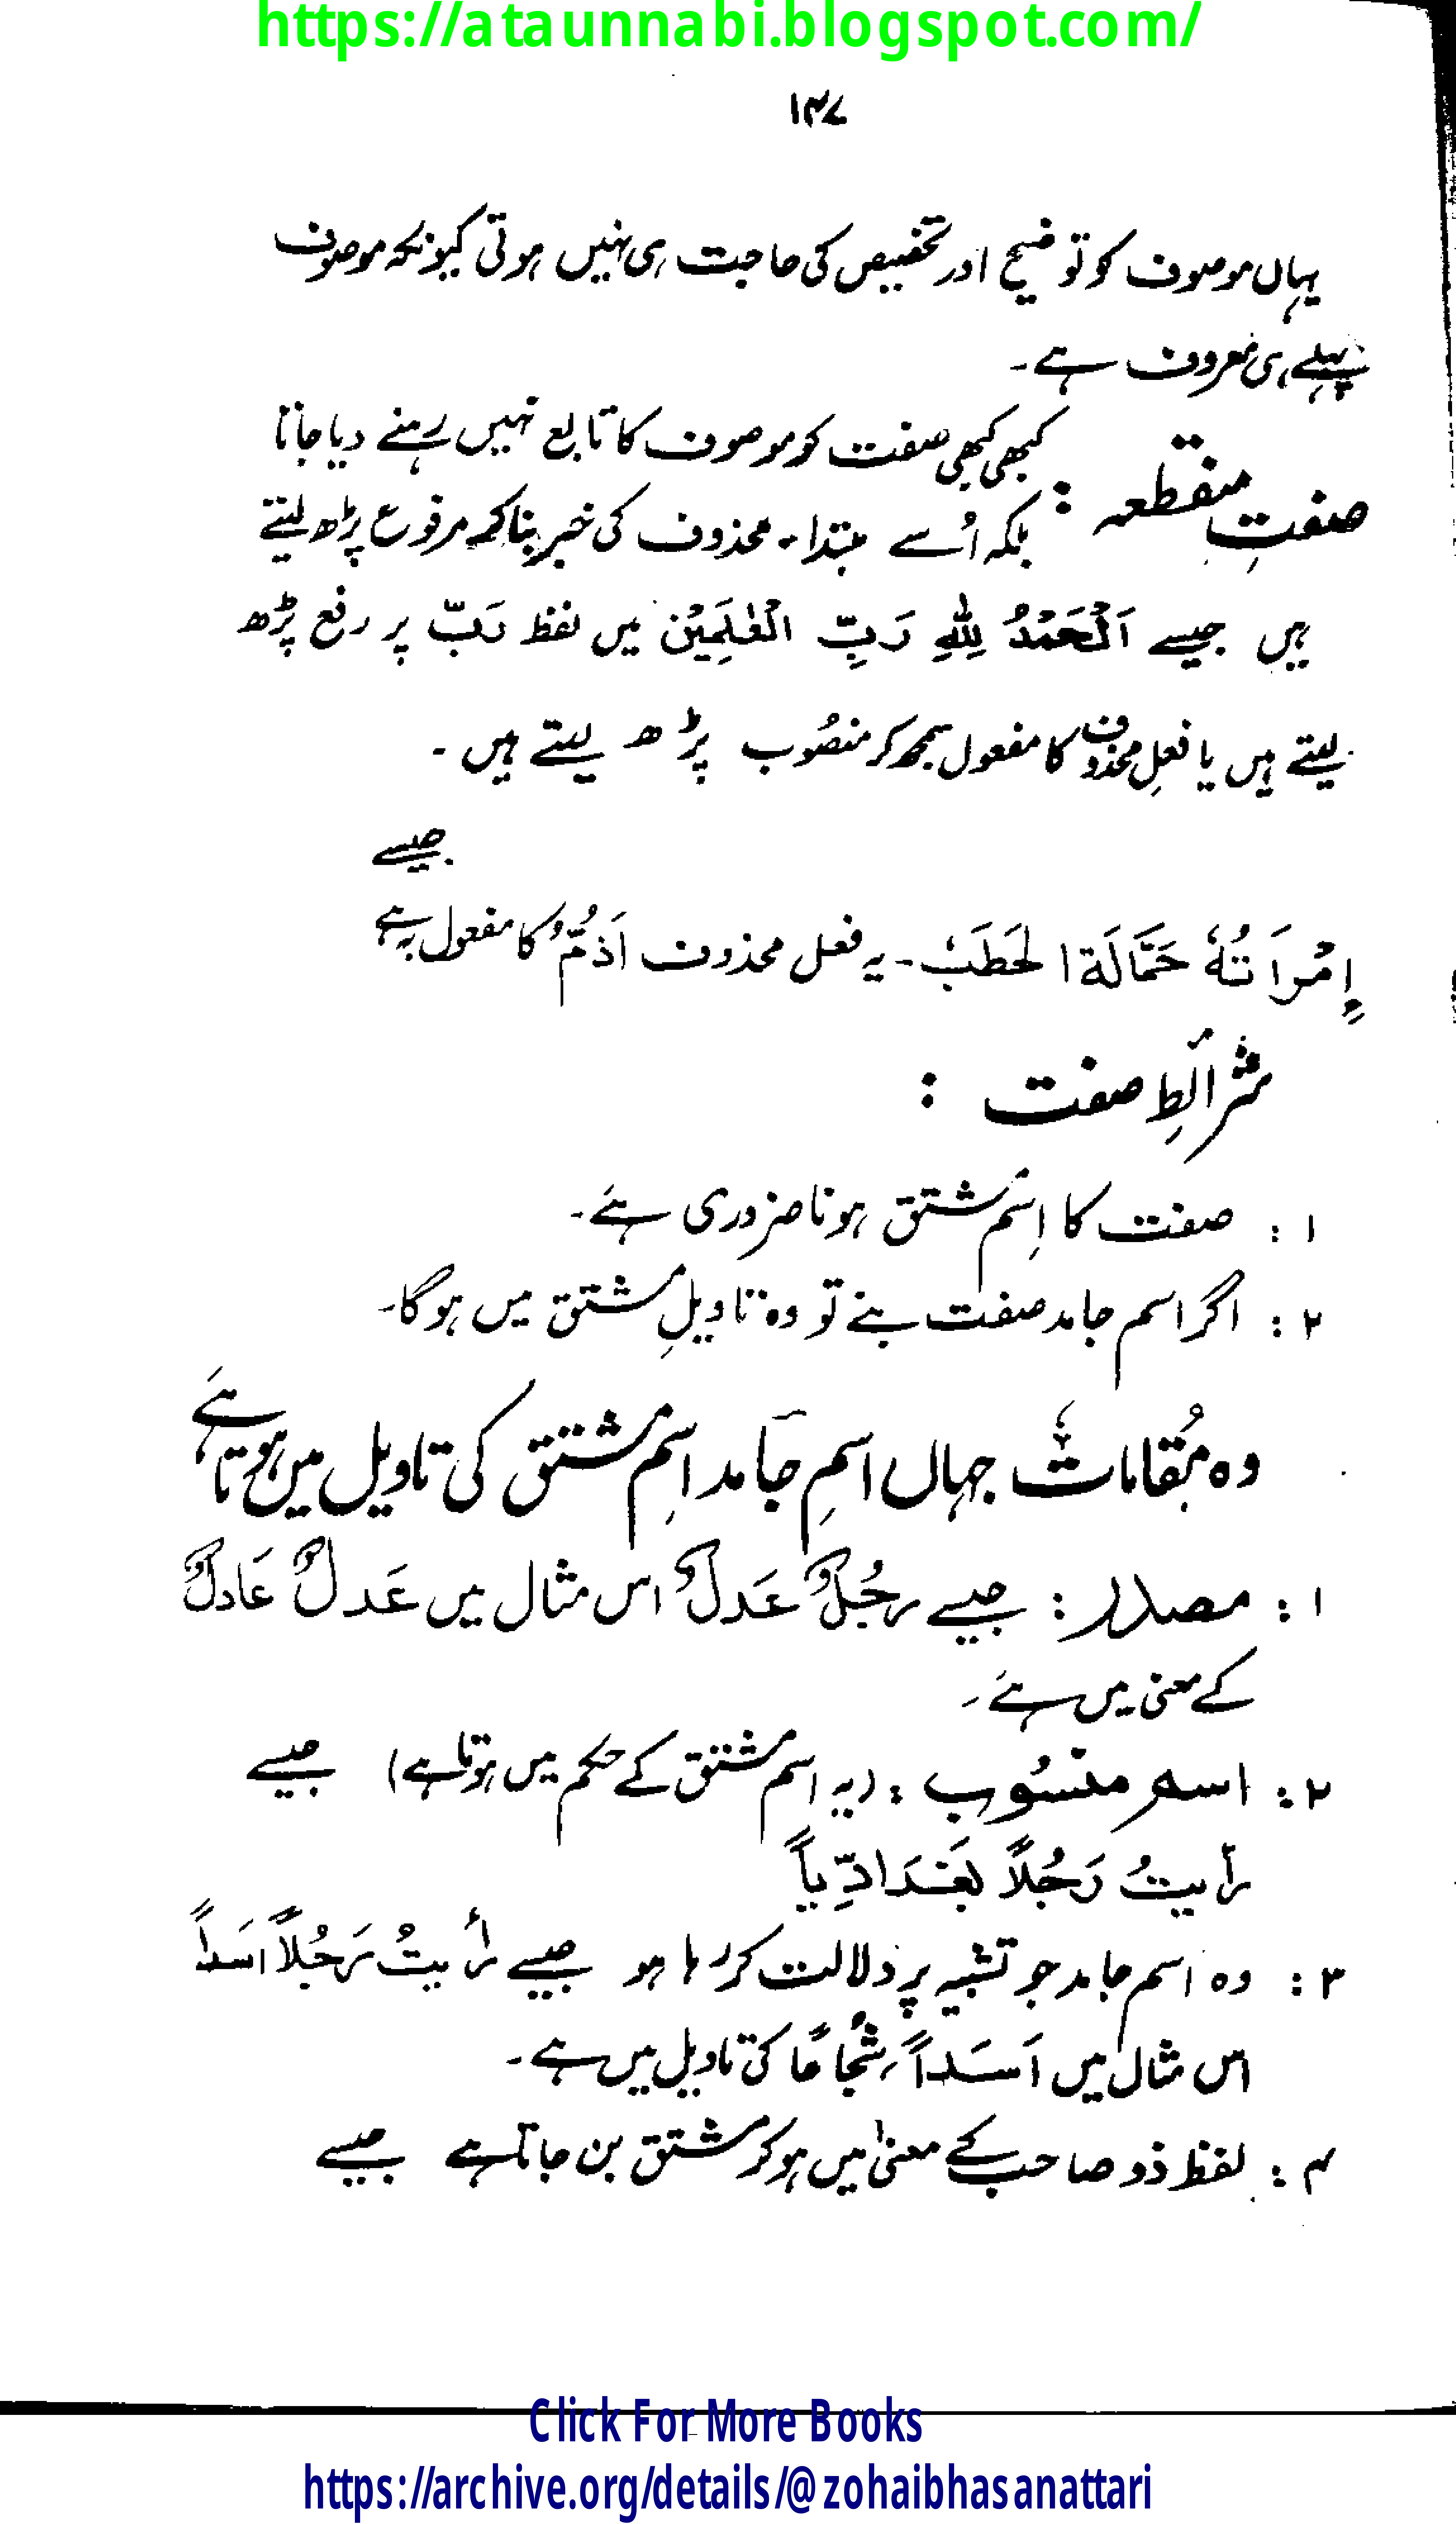 https://ataunnabi.blogspot.com/
۱۴۷
یہاں موصوف کو توضیح اور تخصیص کی حاجت ہی نہیں ہوتی کیونکہ موصوف
پہلے ہی معروف ہے۔
صفتِ منقطعہ : کبھی کبھی صفت کو موصوف کا تابع نہیں رہنے دیا جاتا
بلکہ اُسے مبتداء محذوف کی خبر بنا کر مرفوع پڑھ لیتے
ہیں جیسے اَلْحَمْدُ لِلّٰهِ رَبِّ الْعٰلَمِيْن میں لفظ رَبّ پر رفع پڑھ
لیتے ہیں یا فعلِ محذوف کا مفعول سمجھ کر منصُوب پڑھ لیتے ہیں ۔
جیسے
اِمْرَاَتُهٗ حَمَّالَةَ الْحَطَبْ ۔ یہ فعل محذوف اَذُمُّ کا مفعول بہ ہے
شرائطِ صفت :
۱ : صفت کا اِسْم مشتق ہونا ضروری ہے۔
۲ : اگر اسم جامد صفت بنے تو وہ تاویلِ مشتق میں ہوگا۔
وہ مُقامات جہاں اسمِ جامد اسِم مشتق کی تاویل میں ہوتا ہے
۱ : مصدر : جیسے رجُلٌ عَدلٌ اس مثال میں عَدلٌ عَادلٌ
کے معنی میں ہے ۔
۲ : اسم منسُوب : (یہ اسم مشتق کے حکم میں ہوتا ہے) جیسے
رأیتُ رَجُلاً بَغْدَادِّیاً
۳ : وہ اسم جامد جو تشبیہ پر دلالت کر رہا ہو جیسے رأیتُ رَجُلاً اسَداً
اس مثال میں اَسَداً ، شُجَاعًا کی تاویل میں ہے ۔
۴ : لفظ ذو صاحب کے معنیٰ میں ہو کر مشتق بن جاتا ہے جیسے
Click For More Books
https://archive.org/details/@zohaibhasanattari